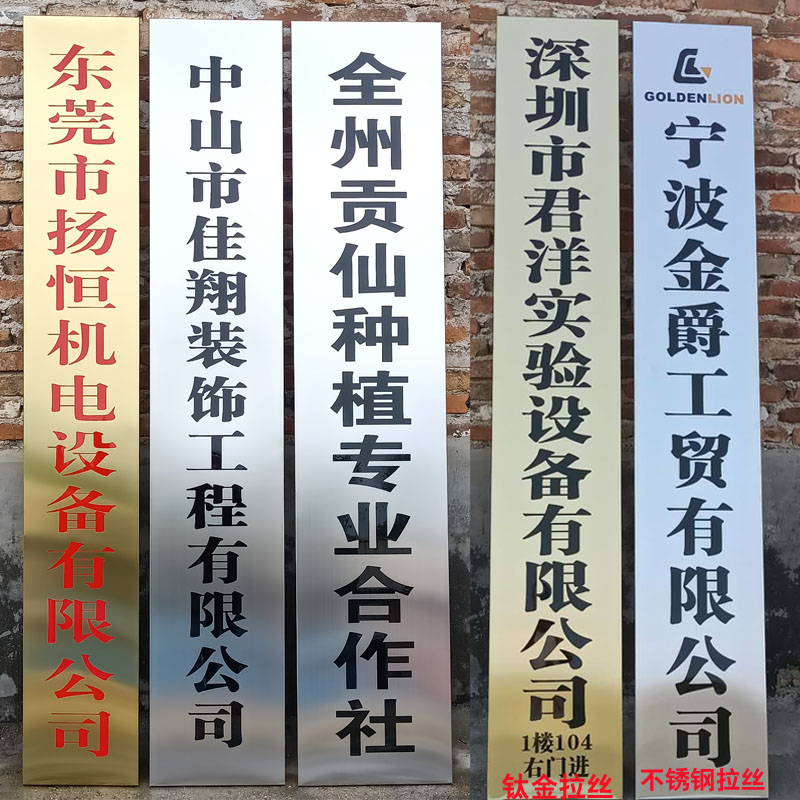 东莞市扬恒机电设备有限公司
中山市佳翔装饰工程有限公司
全州贡仙种植专业合作社
深圳市君洋实验设备有限公司
1楼104
右门进
钛金拉丝
GOLDENLION
宁波金爵工贸有限公司
不锈钢拉丝